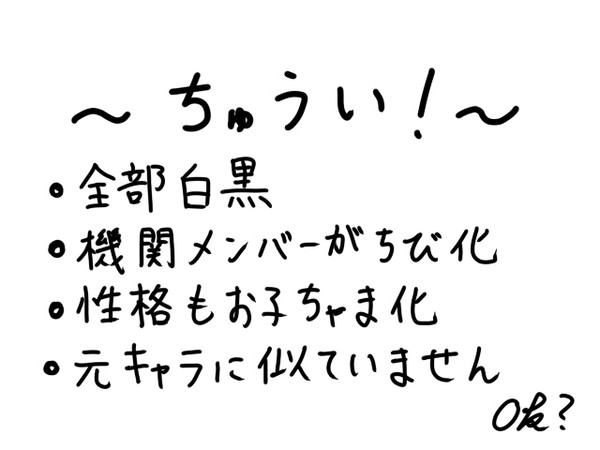 ～ちゅうい!～
・全部白黒
・機関メンバーがちび化
・性格もお子ちゃま化
・元キャラに似ていません